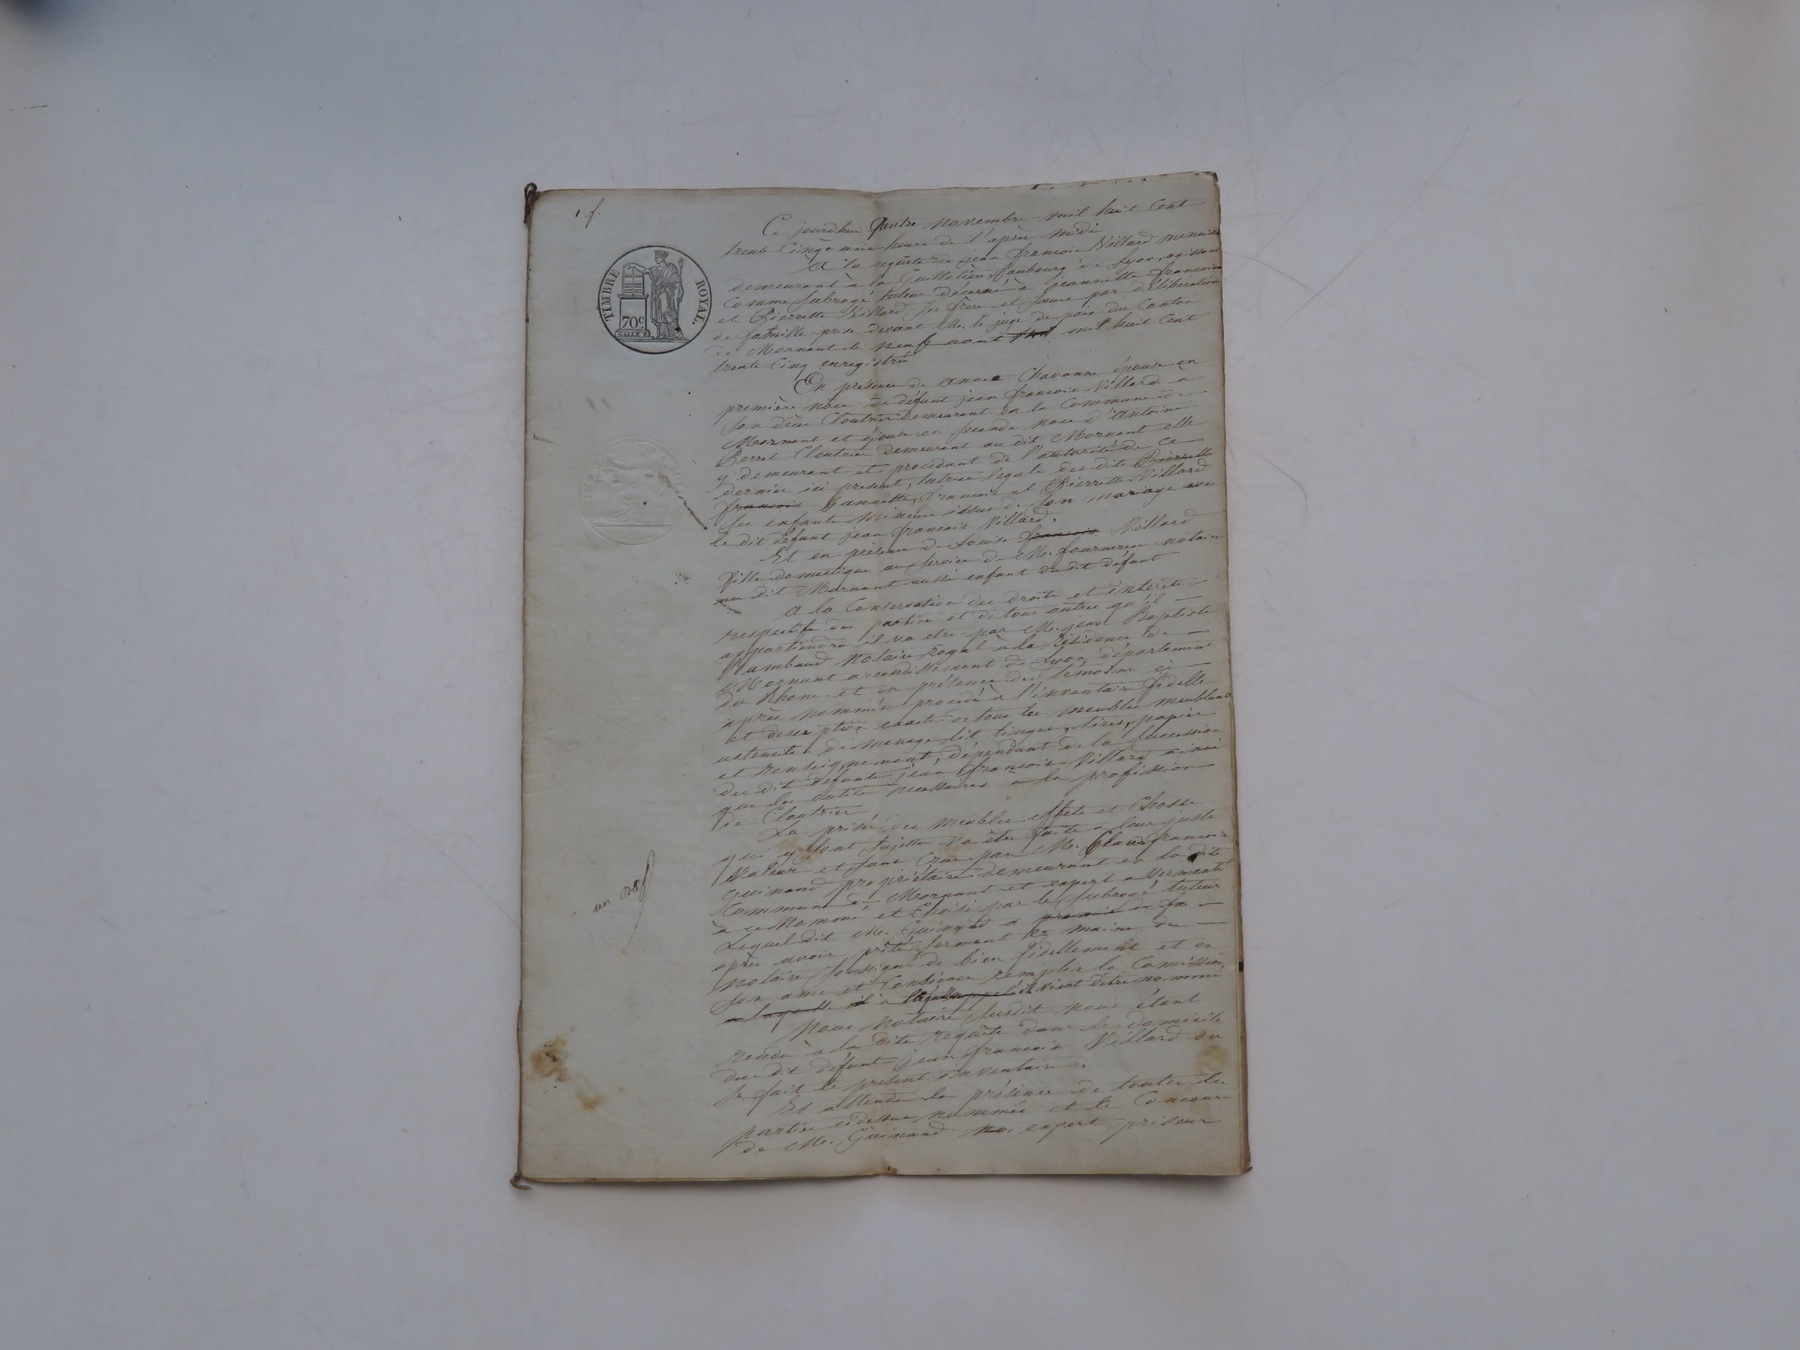 1. f.
TIMBRE ROYAL.
70c
Ce jourdhui quatre novembre mil huit Cent
trente Cinq a une heure de l'après midi
A la requête de jean françois Villard menuisier
demeurant à la Guillotière, faubourg de Lyon, agissant
Comme subrogé tuteur décerné à jeannette, francoise
et Pierrette Villard ses frère et sœurs par délibération
de famille prise devant Me. le juge de paix du Canton
de Mornant le neuf aout mil huit Cent
trente Cinq enregistrée
En présence de anne Chavanne épouse en
première noce de défunt jean françois Villard a
son décès Cloutier Demeurant en la Commune de
Mornant et épouse en seconde noce d'Antoine
Berret Cloutier demeurant au dit Mornant elle
y demeurant et procédant de l'autorité de ce
dernier ici présent, tutrice légale des dits Pierrette
francois Jeannette, francois et Pierrette Villard
ses enfants mineurs issus de son mariage avec
le dit défunt jean françois Villard.
Et en présence de Louise francois Villard
fille domestique au service de Me. fournereau notaire
au dit Mornant aussi enfant du dit défunt
A la Conservation des droits et intérêts
respectifs des parties et de tous autres qu'il
appartiendra il va etre par Me. jean Baptiste
notaire royal à la Résidence de
Mornant arrondissement de Lyon département
du Rhone et en présence des témoins ci
après nommés procédé à l'inventaire fidelle
et description exacte de tous les meubles meublants
ustensiles de menage, lit, linges, titres, papiers
et renseignement, dépendant de la succession
du dit défunt jean françois Villard ainsi
que les outils nécessaires à la profission
de Cloutier
La prisée des meubles effets et Choses
qui y sont sujettes va être faite a leur juste
valeur et sans Crue par Me. Claude francois
Guinand propriétaire demeurant en la dite
Commune de Mornant et expert assermenté
à ce Nommé et Choisi par le subrogé tuteur
Lequel dit Me. Guinand a promis de fa
après avoir prêté serment es mains du
notaire soussigné de bien fidellement et en
son ame et Consience remplir la Comission
a laquelle il a laquelle il vient dêtre nommé
Nous Notaire susdit nous étant
rendu à la dite requête dans le domicile
du dit défunt jean francois Villard ou
se fait le présent inventaire.
Et attendu la présence de toutes les
parties cidessus nommées et le Concours
de Me. Guinand no. expert priseur
un